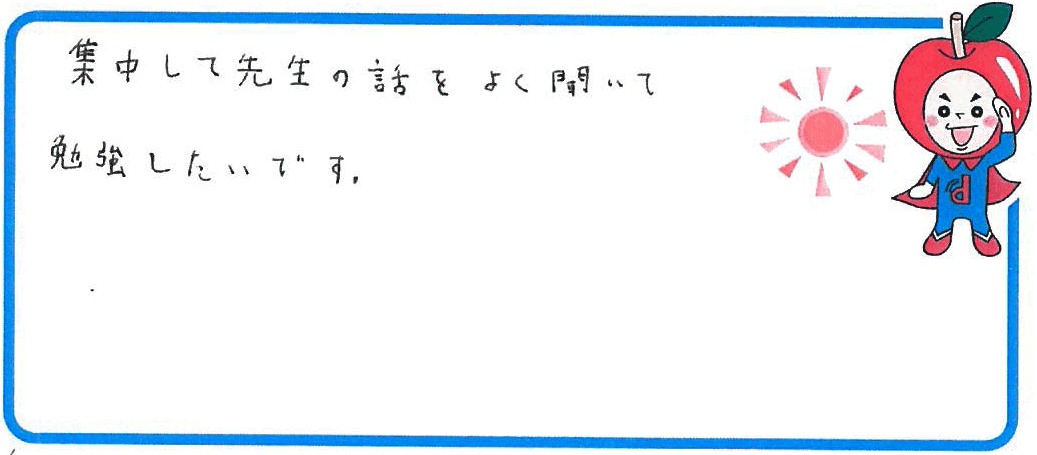 集中して先生の話をよく聞いて
勉強したいです.